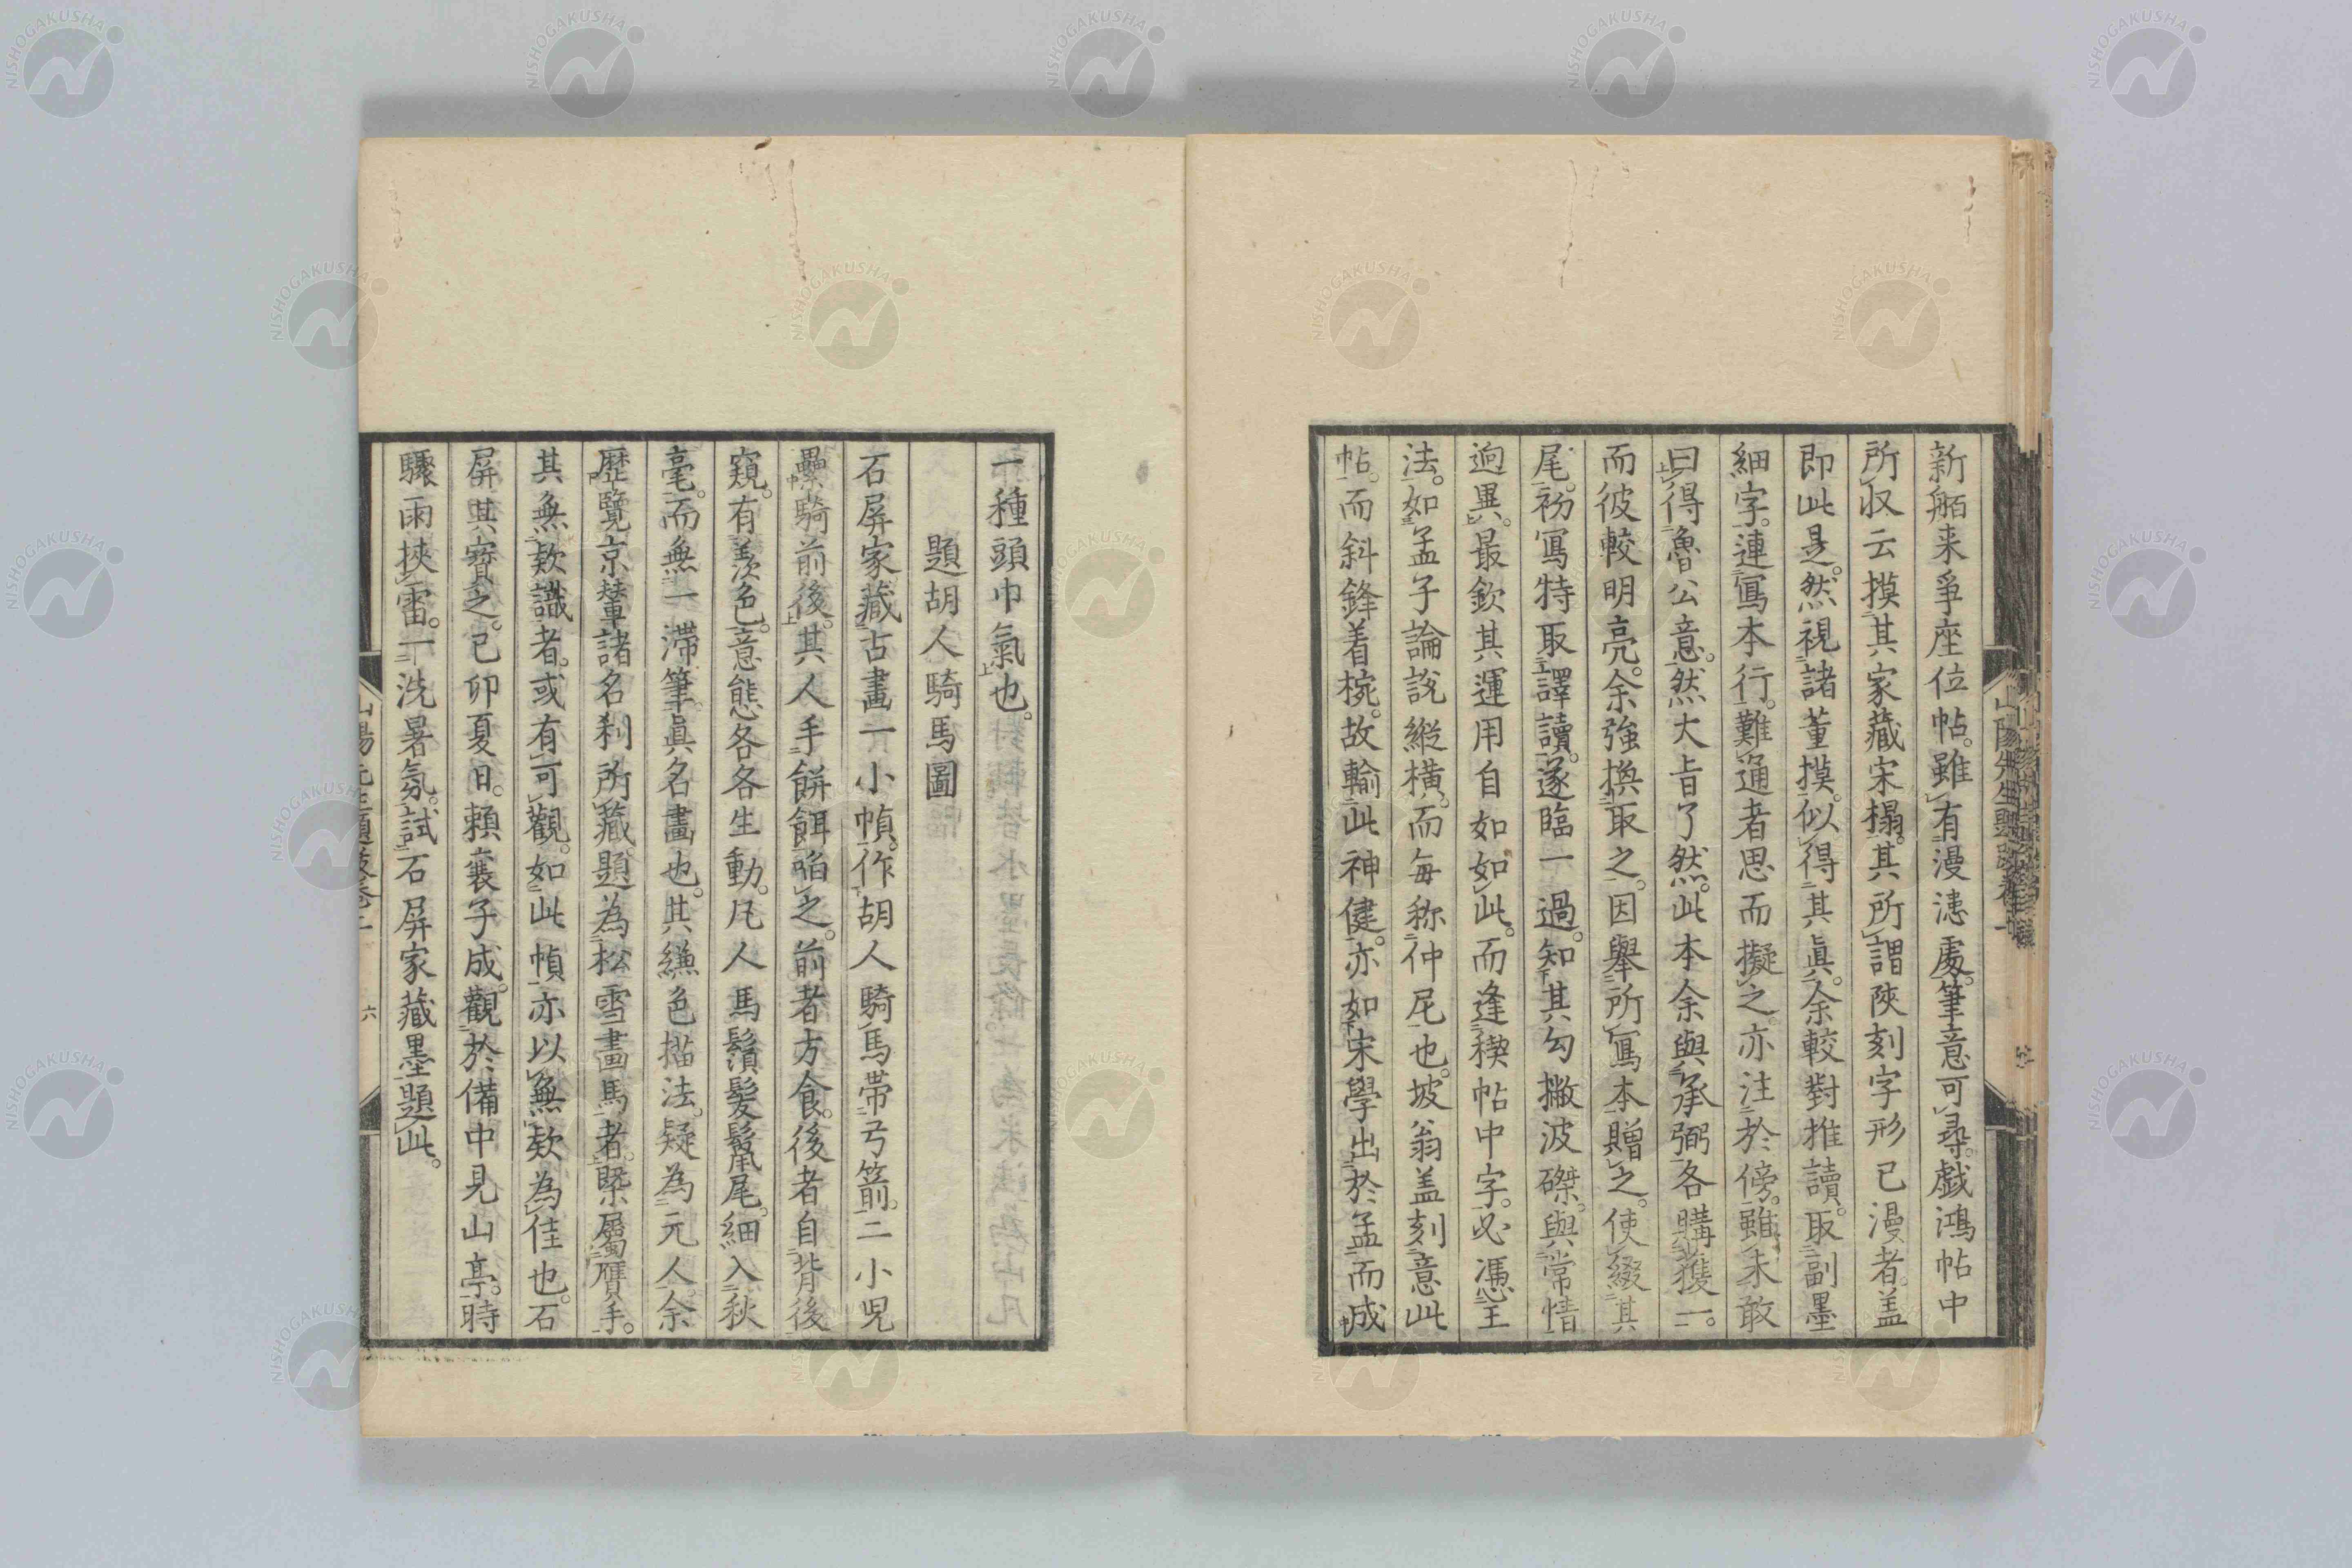 新舶来爭座位帖。雖有漫漶處。筆意可尋。戲鴻帖中
所收云摸其家藏宋榻。其所謂陝刻字形已漫者。盖
即此是。然視諸董摸。似得其眞。余較對推讀。取副墨
細字。連寫本行。難通者思而擬之。亦注於傍。雖未敢
曰得魯公意。然大旨了然。此本余與承弼各購獲一。
而彼較明亮。余強換取之。因舉所寫本贈之。使綴其
尾。初寫特取譯讀。遂臨一過。知其勾撇波磔。與常悟
逈異。最欽其運用自如如此。而逢稧帖中字。必憑王
法。如孟子論說縱橫。而毎称仲尼也。坡翁盖刻意此
帖。而斜鋒着椀。故輸此神健。亦如宋學出於孟而成
一種頭巾氣也。
題胡人騎馬圖
石屏家藏古畫一小幀。作胡人騎馬帯弓箭。二小児
纍騎前後。其人手餅餌啗之。前者方食。後者自背後
窺。有羨色。意態各各生動。凡人馬鬚髮鬣尾。細入秋
毫。而無一滞筆。眞名畫也。其縑色描法。疑為元人。余
歷覽京輦諸名刹所藏題為松雪畫馬者。槩屬贋手。
其無欵識者。或有可觀。如此幀亦以無欵為佳也。石
屏其寳之。己卯夏日。頼襄子成。觀於備中見山亭。時
驟雨挾雷。一洗暑氛。試石屏家藏墨題此。
山陽先生題跋卷上
六
NISHOGAKUSHA